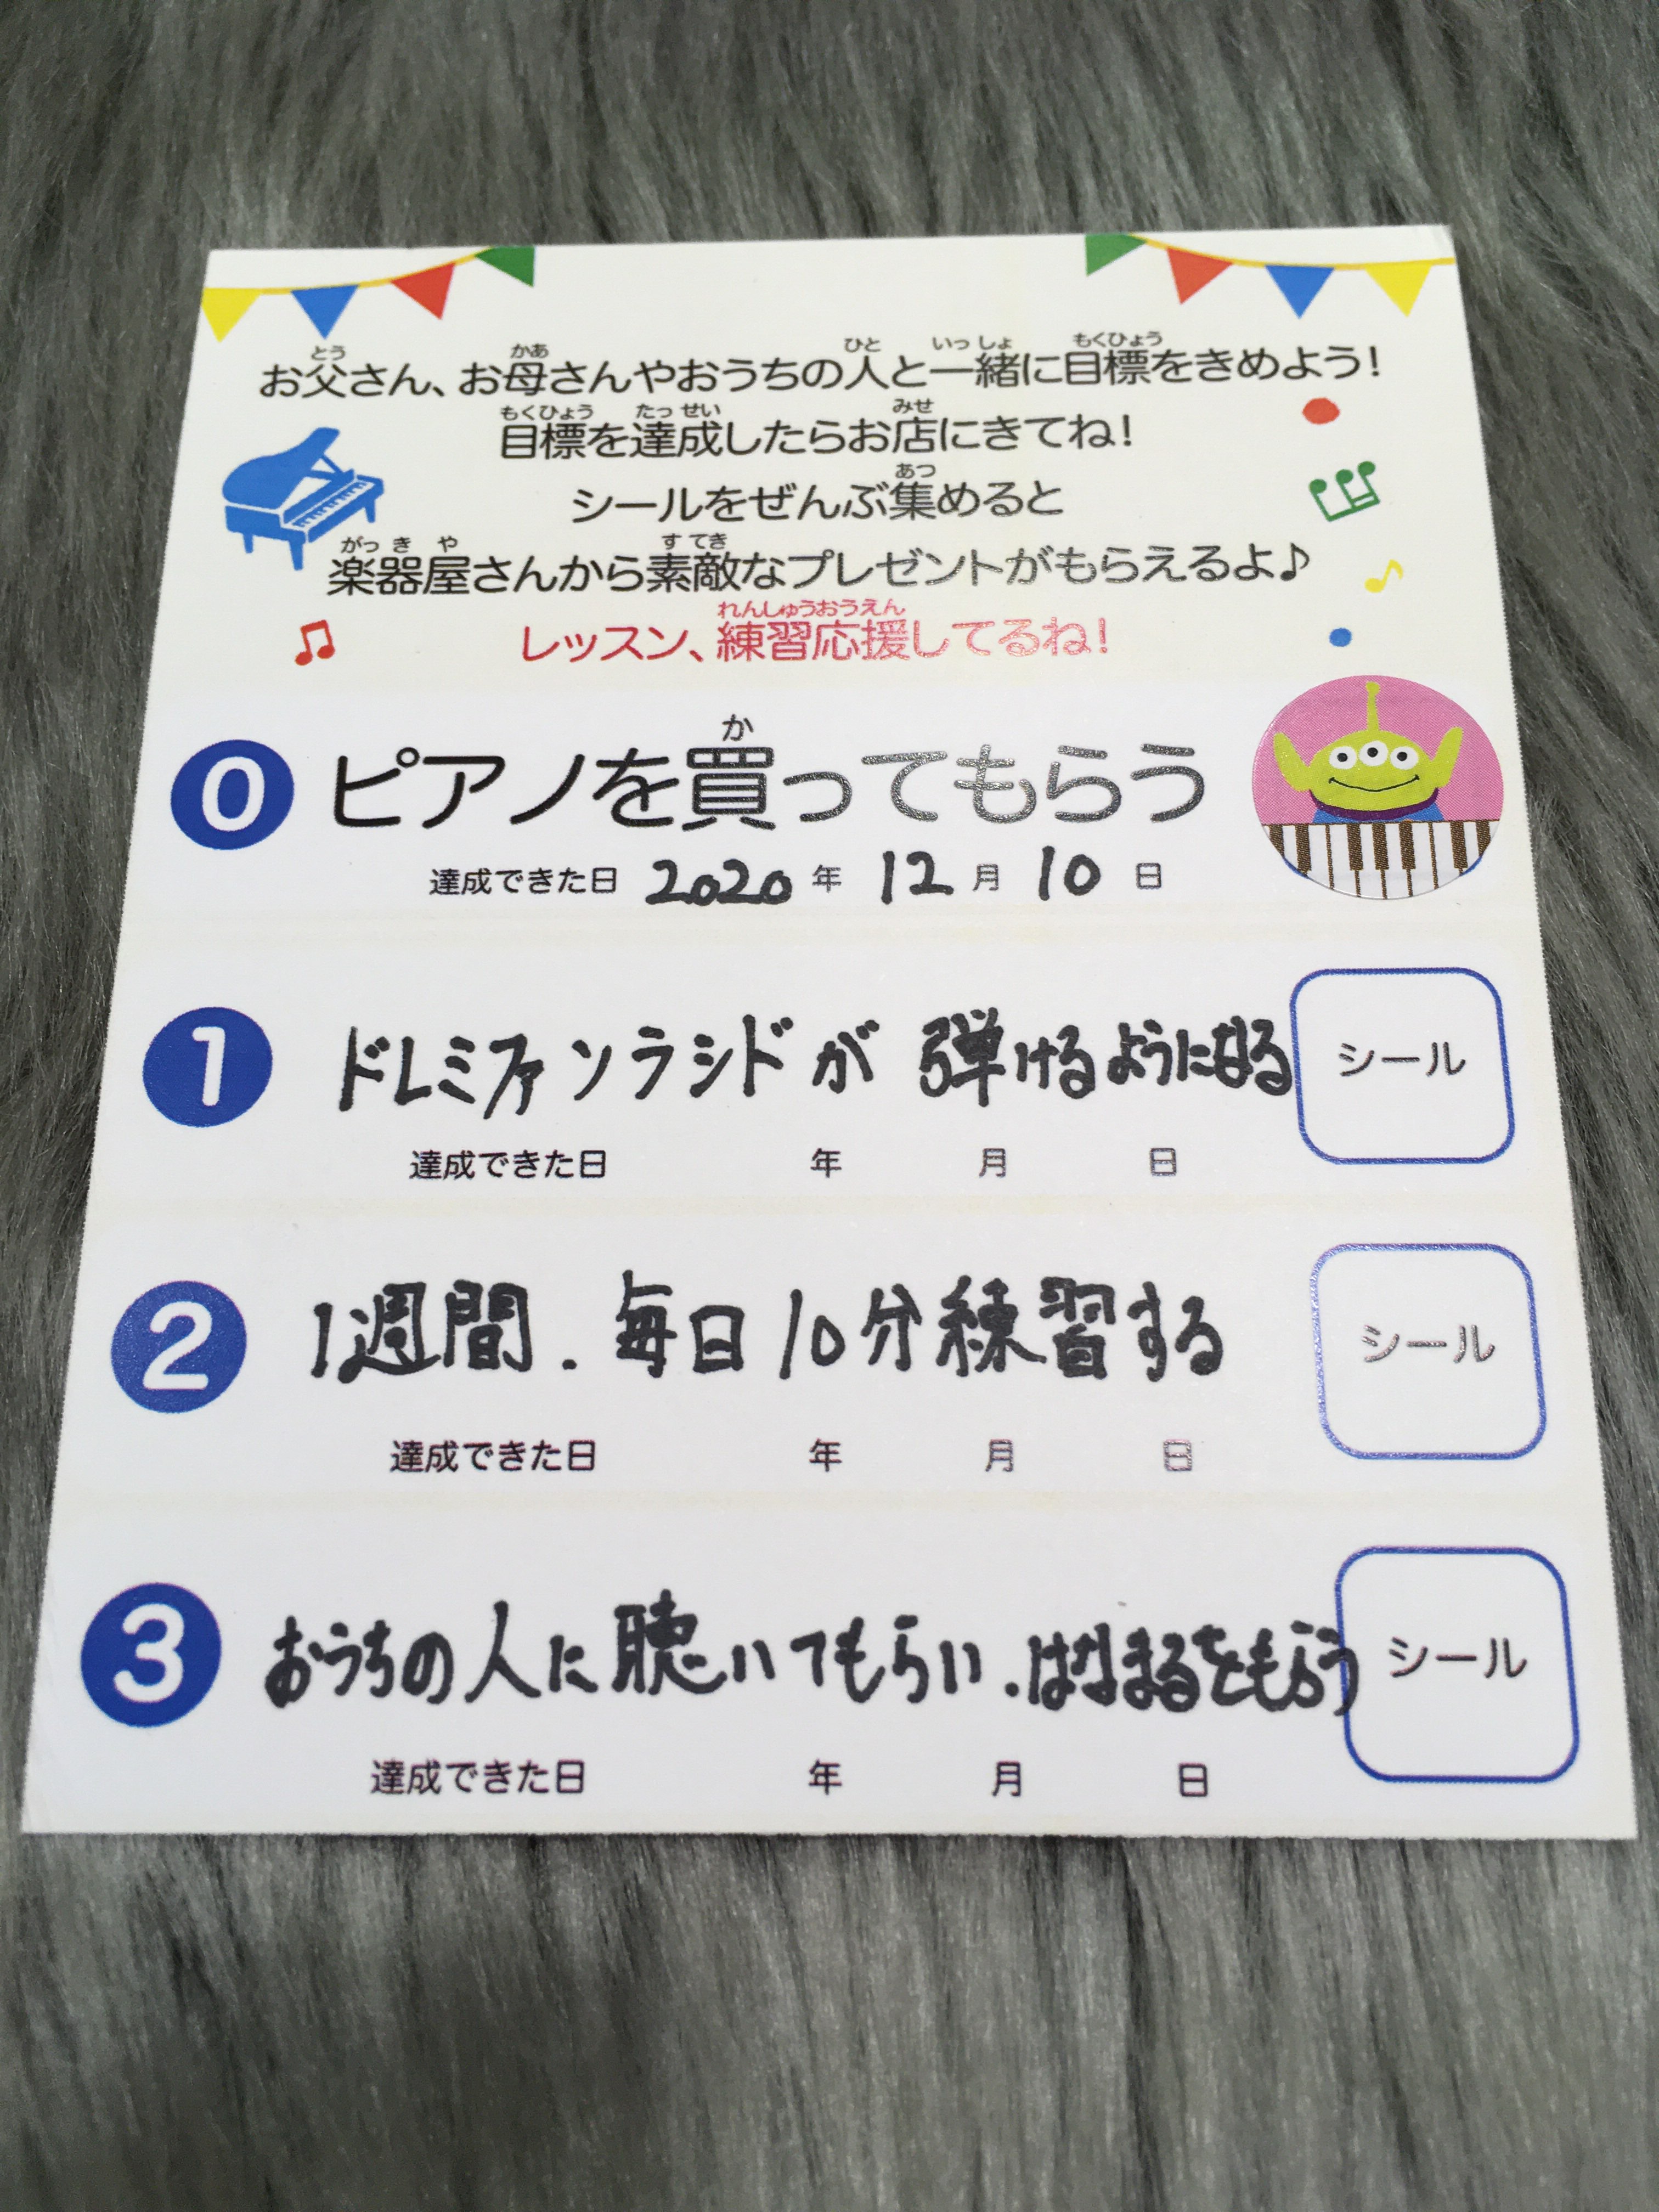 お父さん、お母さんやおうちの人と一緒に目標をきめよう!
目標を達成したらお店にきてね!
シールをぜんぶ集めると
楽器屋さんから素敵なプレゼントがもらえるよ♪
レッスン、練習応援してるね!
0 ピアノを買ってもらう
達成できた日 2020 年 12 月 10 日
1 ドレミファソラシドが 弾けるようになる シール
達成できた日 年 月 日
2 1週間. 毎日10分練習する シール
達成できた日 年 月 日
3 おうちの人に聴いてもらい.はなまるをもらう シール
達成できた日 年 月 日